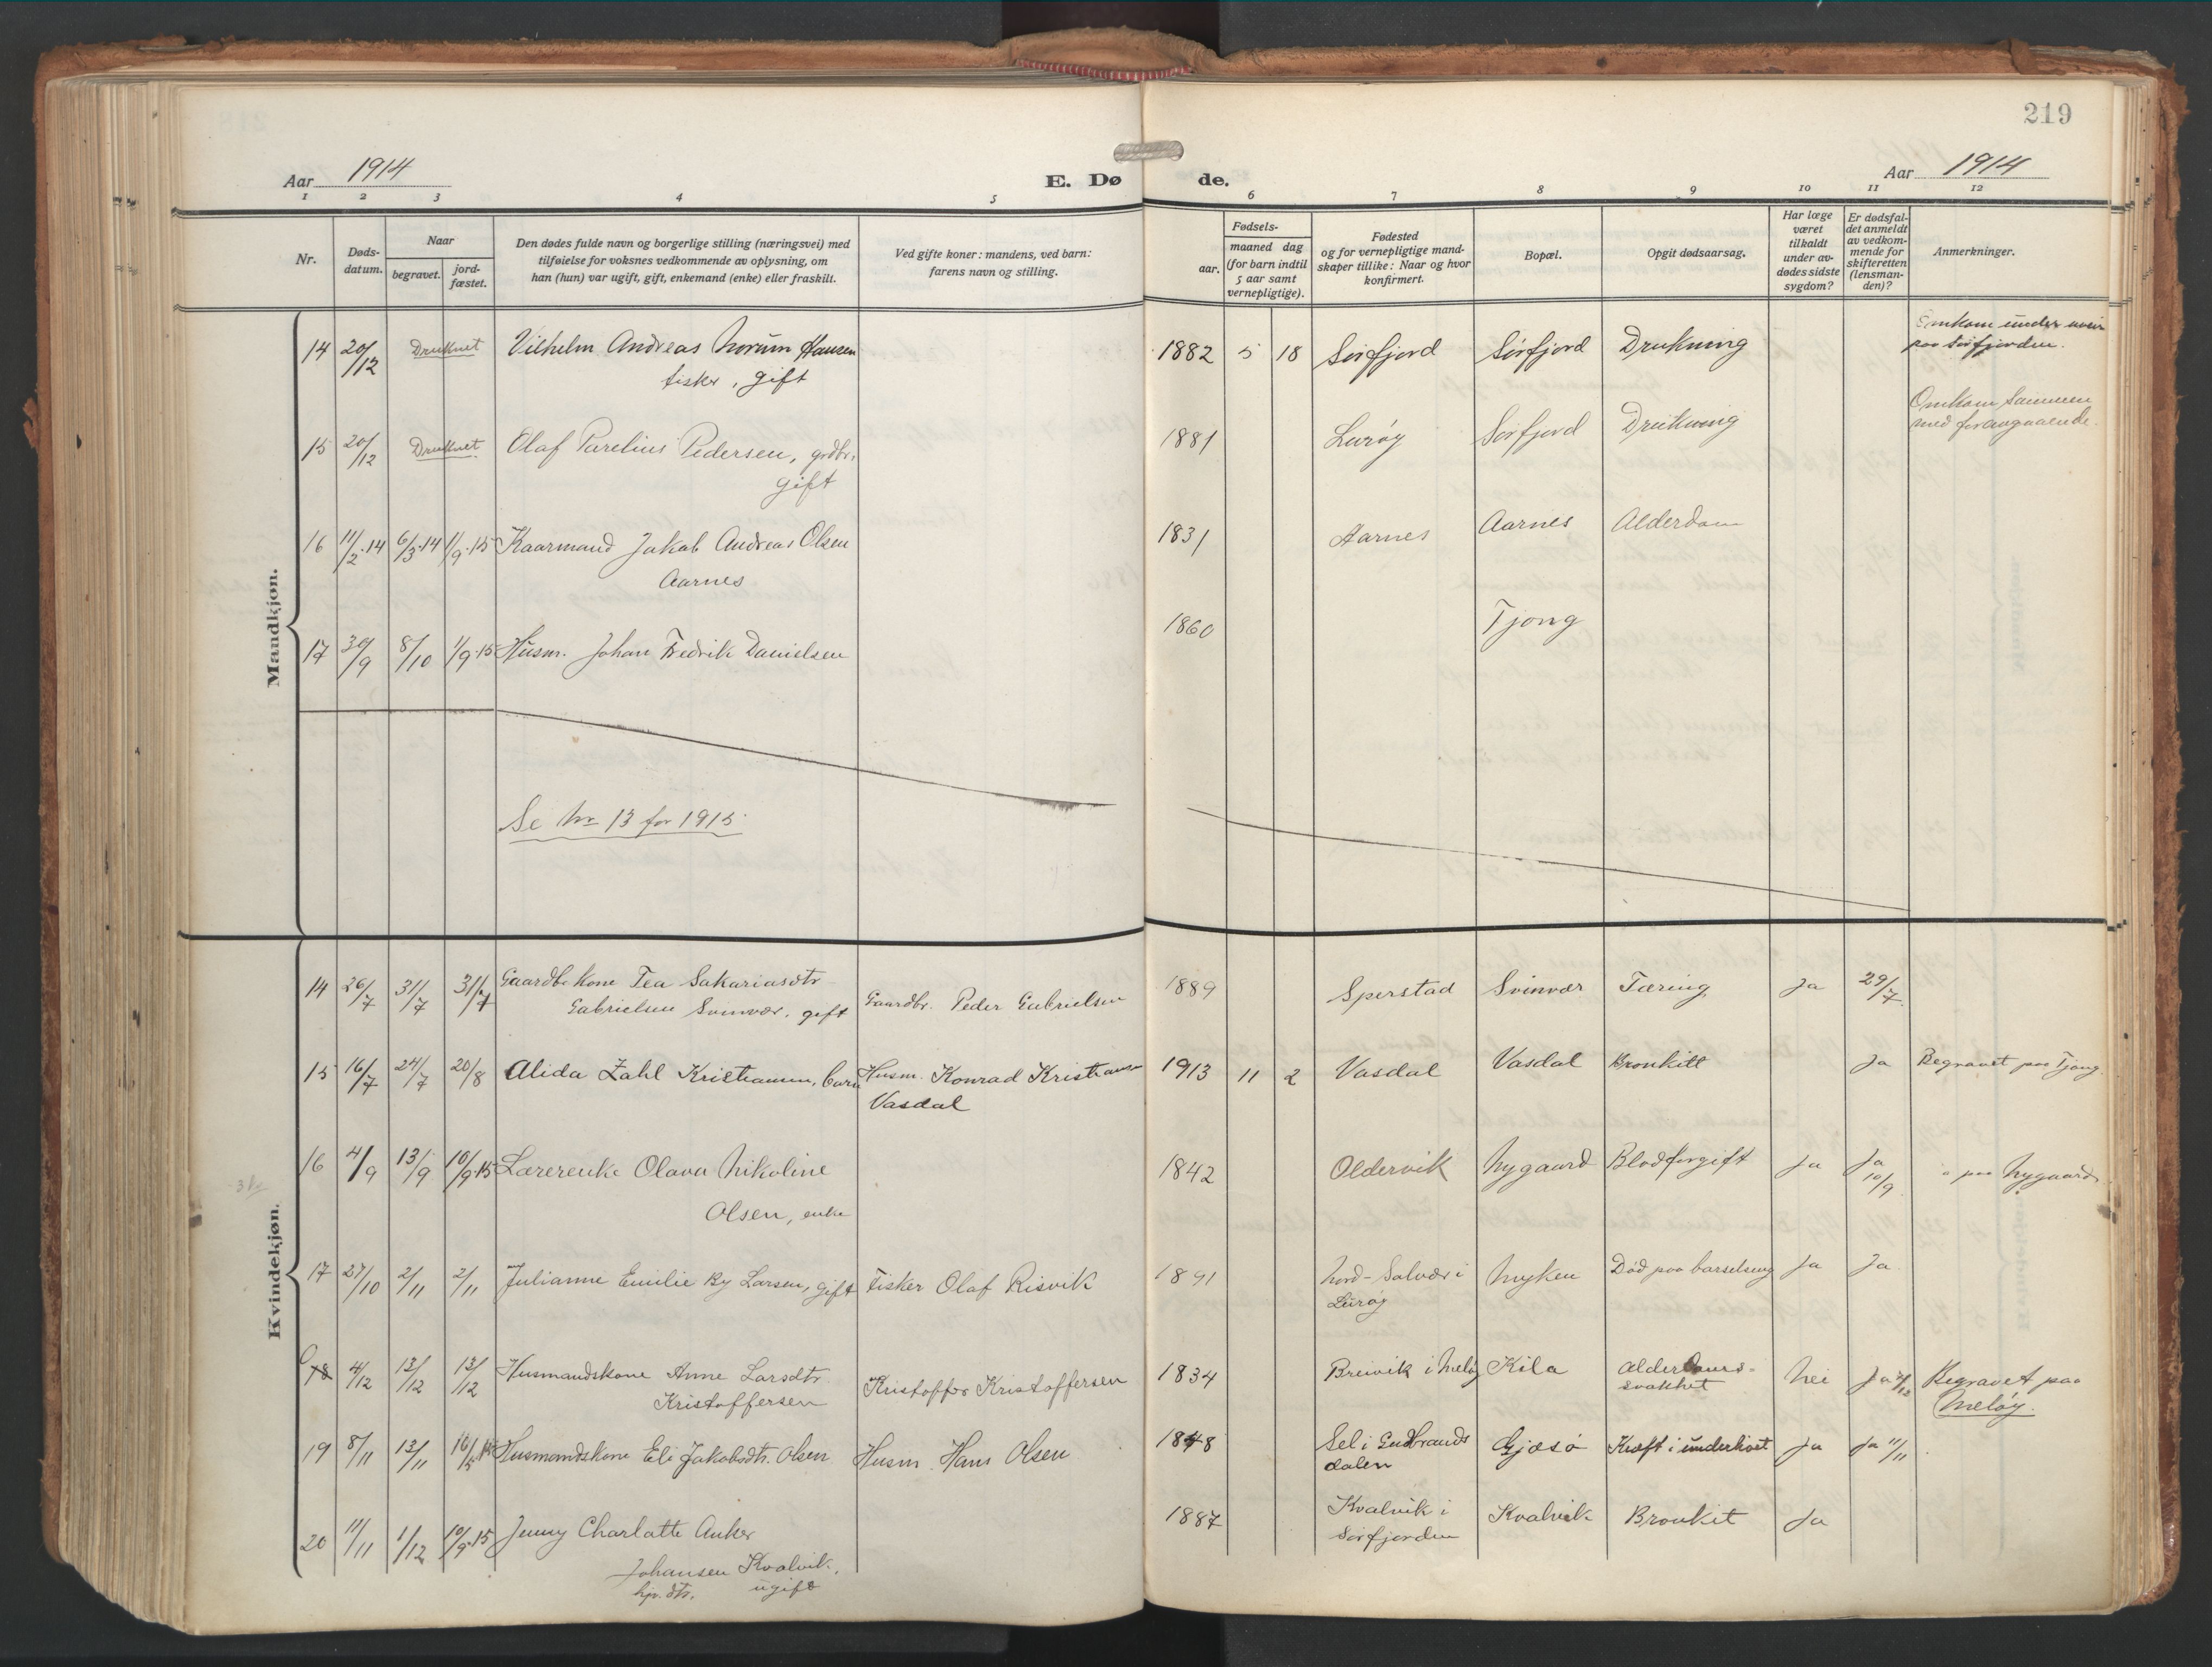 219
Aar 1914
E. Dø
de.
Aar 1914
1 2 3 4 5 6 7 8 9 10 11 12
Nr.
Døds-
datum.
Naar
begravet.
jord-
fæstet.
Den dødes fulde navn og borgerlige stilling (næringsvei) med
tilføielse for voksnes vedkommende av oplysning, om
han (hun) var ugift, gift, enkemand (enke) eller fraskilt.
Ved gifte koner: mandens, ved barn:
farens navn og stilling.
Fødsels-
aar.
maaned dag
(for barn indtil
5 aar samt
vernepligtige).
Fødested
og for vernepligtige mand-
skaper tillike: Naar og hvor
konfirmert.
Bopæl.
Opgit dødsaarsag.
Har læge
været
tilkaldt
under av-
dødes sidste
sygdom?
Er dødsfal-
det anmeldt
av vedkom-
mende for
skifteretten
(lensman-
den)?
Anmerkninger.
Mandkjøn.
14 20/12 Druknet Vilhelm Andreas Norum Hansen 1882 5 18 Sørfjord Sørfjord Drukning Omkom under
paa Sørfjorden.
fisker, gift
15 20/12 Druknet Olaf Parelius Pedersen, grdbr. 1881 Lurøy Sørfjord Drukning Omkom sammen
med foregaaende.
gift
16 11/2·14 6/3·14 1/9·15 Kaarmand Jakob Andreas Olsen 1831 Aarnes Aarnes Alderdom
Aarnes
17 30/9 8/10 1/9·15 Husm. Johan Fredrik Danielsen 1860 Tjong
Se Nr 13 for 1915.
Kvindekjøn.
14 26/7 31/7 31/7 Gaardbr.kone Tea Sakariasdtr. Gaardbr. Peder Gabrielsen 1889 Sperstad Svinvær Tæring Ja 29/7.
Gabrielsen Svinvær, gift
15 16/7 24/7 20/8 Alida Zahl Kristiansen, barn Husm. Konrad Kristiansen 1913 11 2 Vasdal Vasdal Bronkitt Ja Begravet paa Tjong.
Vasdal
16 4/9 13/9 10/9·15 Lærerenke Olava Nikoline 1842 Oldervik Nygaard Blodforgift Ja Ja 10/9 paa Nygaard
Olsen, enke
17 27/10 2/11 2/11 Julianne Emilie By Larsen, gift Fisker Olaf Risvik 1891 Nord-Solvær i Myken Død paa barselseng Ja Ja
Lurøy
18 4/12 13/12 13/12 Husmandskone Anne Larsdtr. Kristoffer Kristoffersen 1834 Breivik i Meløy Kila Alderdoms- Nei Ja Begravet paa
Kristoffersen svakhet Meløy.
19 8/11 13/11 Husmandskone Eli Jakobsdtr. Olsen Husm. Hans Olsen 1848 Sel i Gudbrands Gjæsø Kræft i underlivet Ja Ja 11/11
dalen
20 11/11 1/12 10/9·15 Jenny Charlatte Anker 1887 Kvalvik i Kvalvik Bronkit Ja
Johansen Kvalvik, Sørfjorden
hjv. dtr. ugift